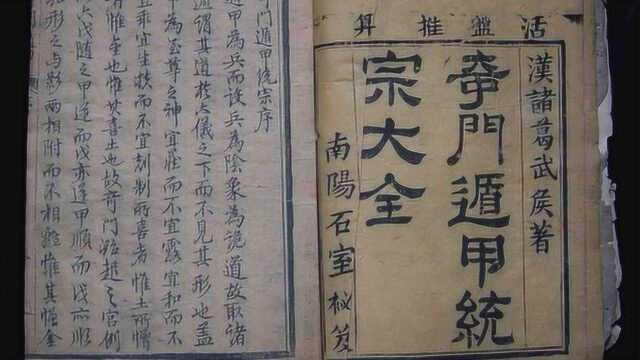 活盤推算
漢諸葛武侯著
奇門遁甲統
宗大全
南陽石室秘笈
門遁甲統宗序
遁甲為兵而設兵為陰象為詭道故取諸
謂其道於六儀之下而不見其形也盖
為至尊之神宜莊而不宜露宜和而不
乖宜生扶而不宜尅制所喜者惟土所憎
者惟金也惟其喜土也故奇門始起之宮例
六戊随之甲逆而戊亦逆甲順而戊亦順
形之与影兩相附而不相離惟其憎金